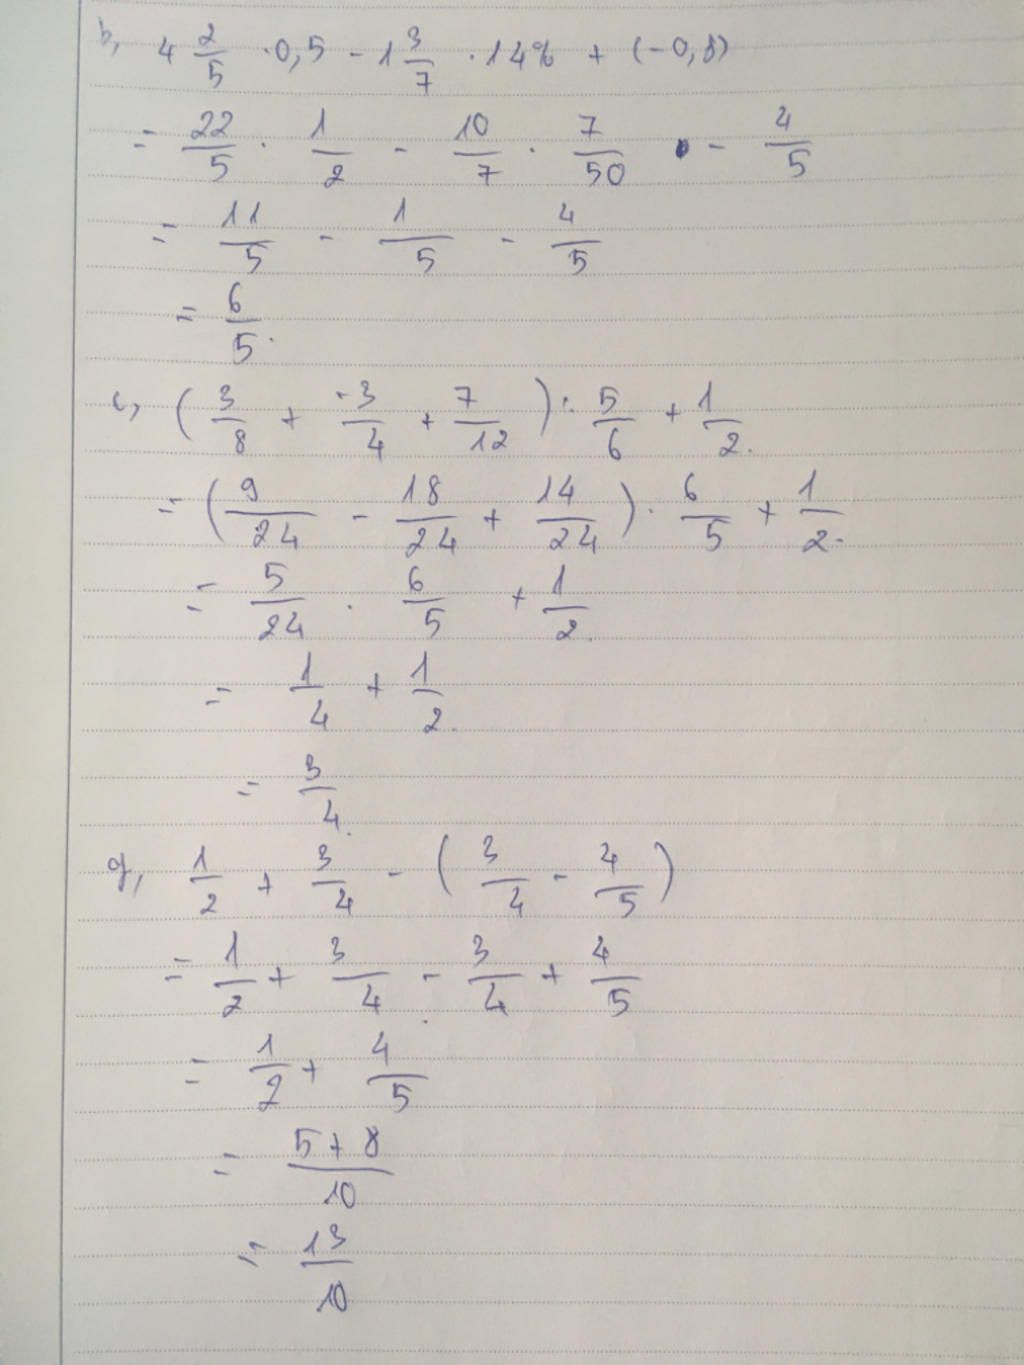 b, 4 2/5 · 0,5 - 1 3/7 · 14% + (-0,8)
= 22/5 · 1/2 - 10/7 · 7/50 - 4/5
= 11/5 - 1/5 - 4/5
= 6/5.
c, (3/8 + -3/4 + 7/12) : 5/6 + 1/2.
= (9/24 - 18/24 + 14/24) · 6/5 + 1/2.
= 5/24 · 6/5 + 1/2.
= 1/4 + 1/2.
= 3/4.
g, 1/2 + 3/4 - (3/4 - 4/5)
= 1/2 + 3/4 - 3/4 + 4/5
= 1/2 + 4/5
= 5+8/10
= 13/10